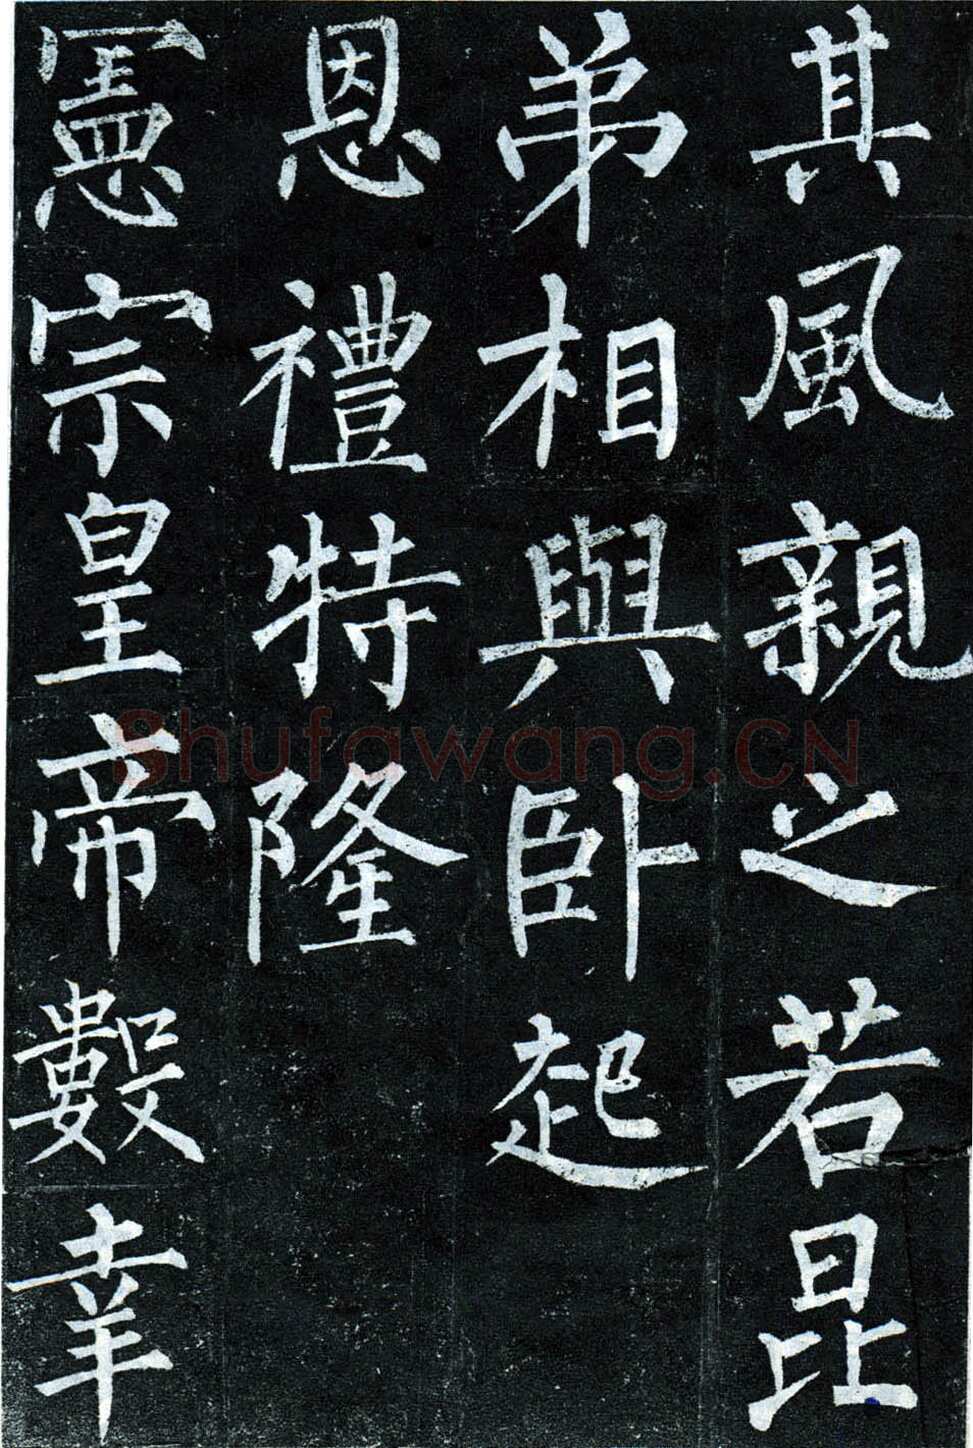 其風親之若昆
弟相與臥起
恩禮特隆
憲宗皇帝數幸
Shufawang.CN